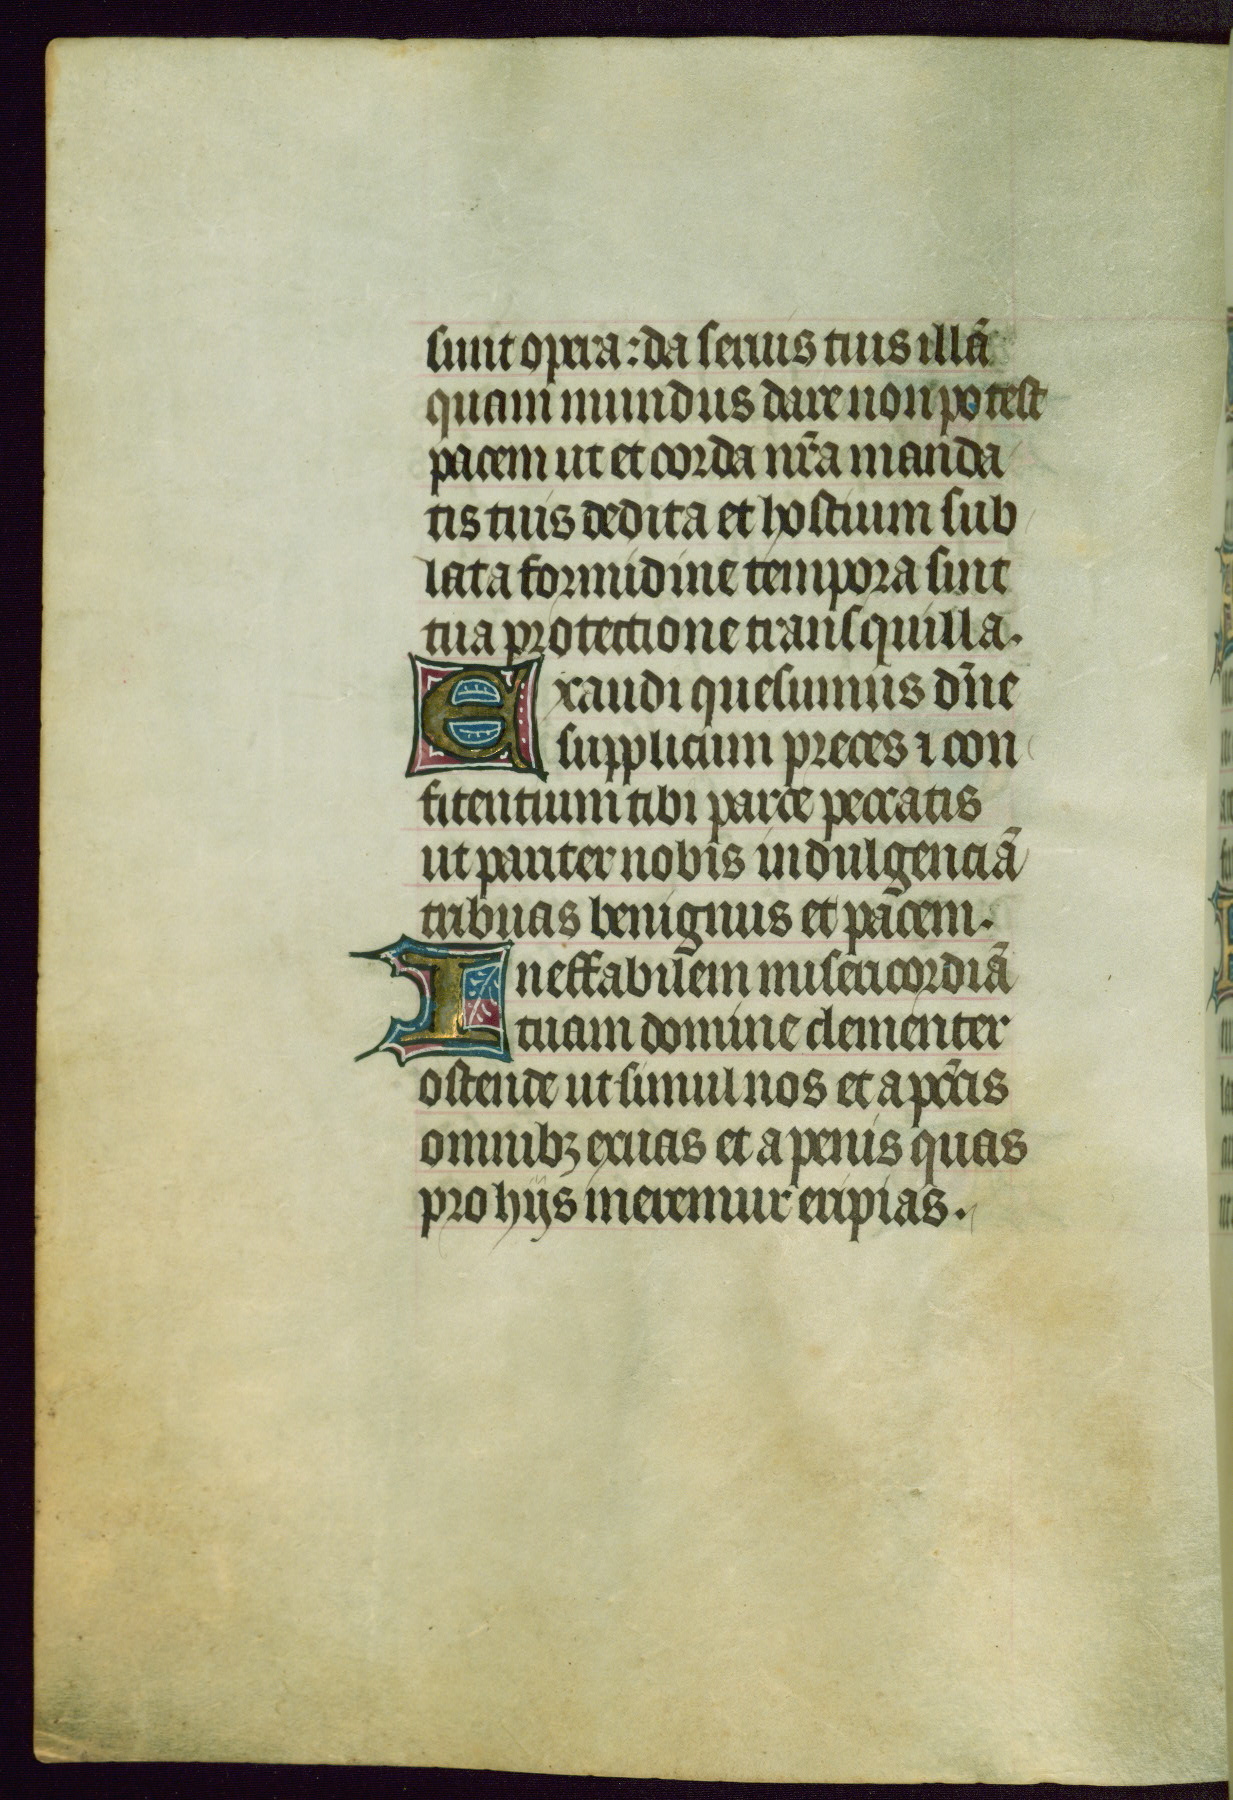 sunt opera: da seruis tuis illā
quam mundus dare non potest
pacem ut et corda nr̄a manda
tis tuis dedita et hostium sub
lata formidine tempora sint
tua protectione transquilla.
Exaudi quesumus dn̄e
supplicum preces ⁊ con
fitentium tibi parce peccatis
ut pariter nobis indulgenciā
tribuas benignus et pācem.
Ineffabilem misericordiā
tuam domine clementer
ostende ut simul nos et a pctīs
omnibꝫ exuas et a penis quas
pro hijs meremur eripias.